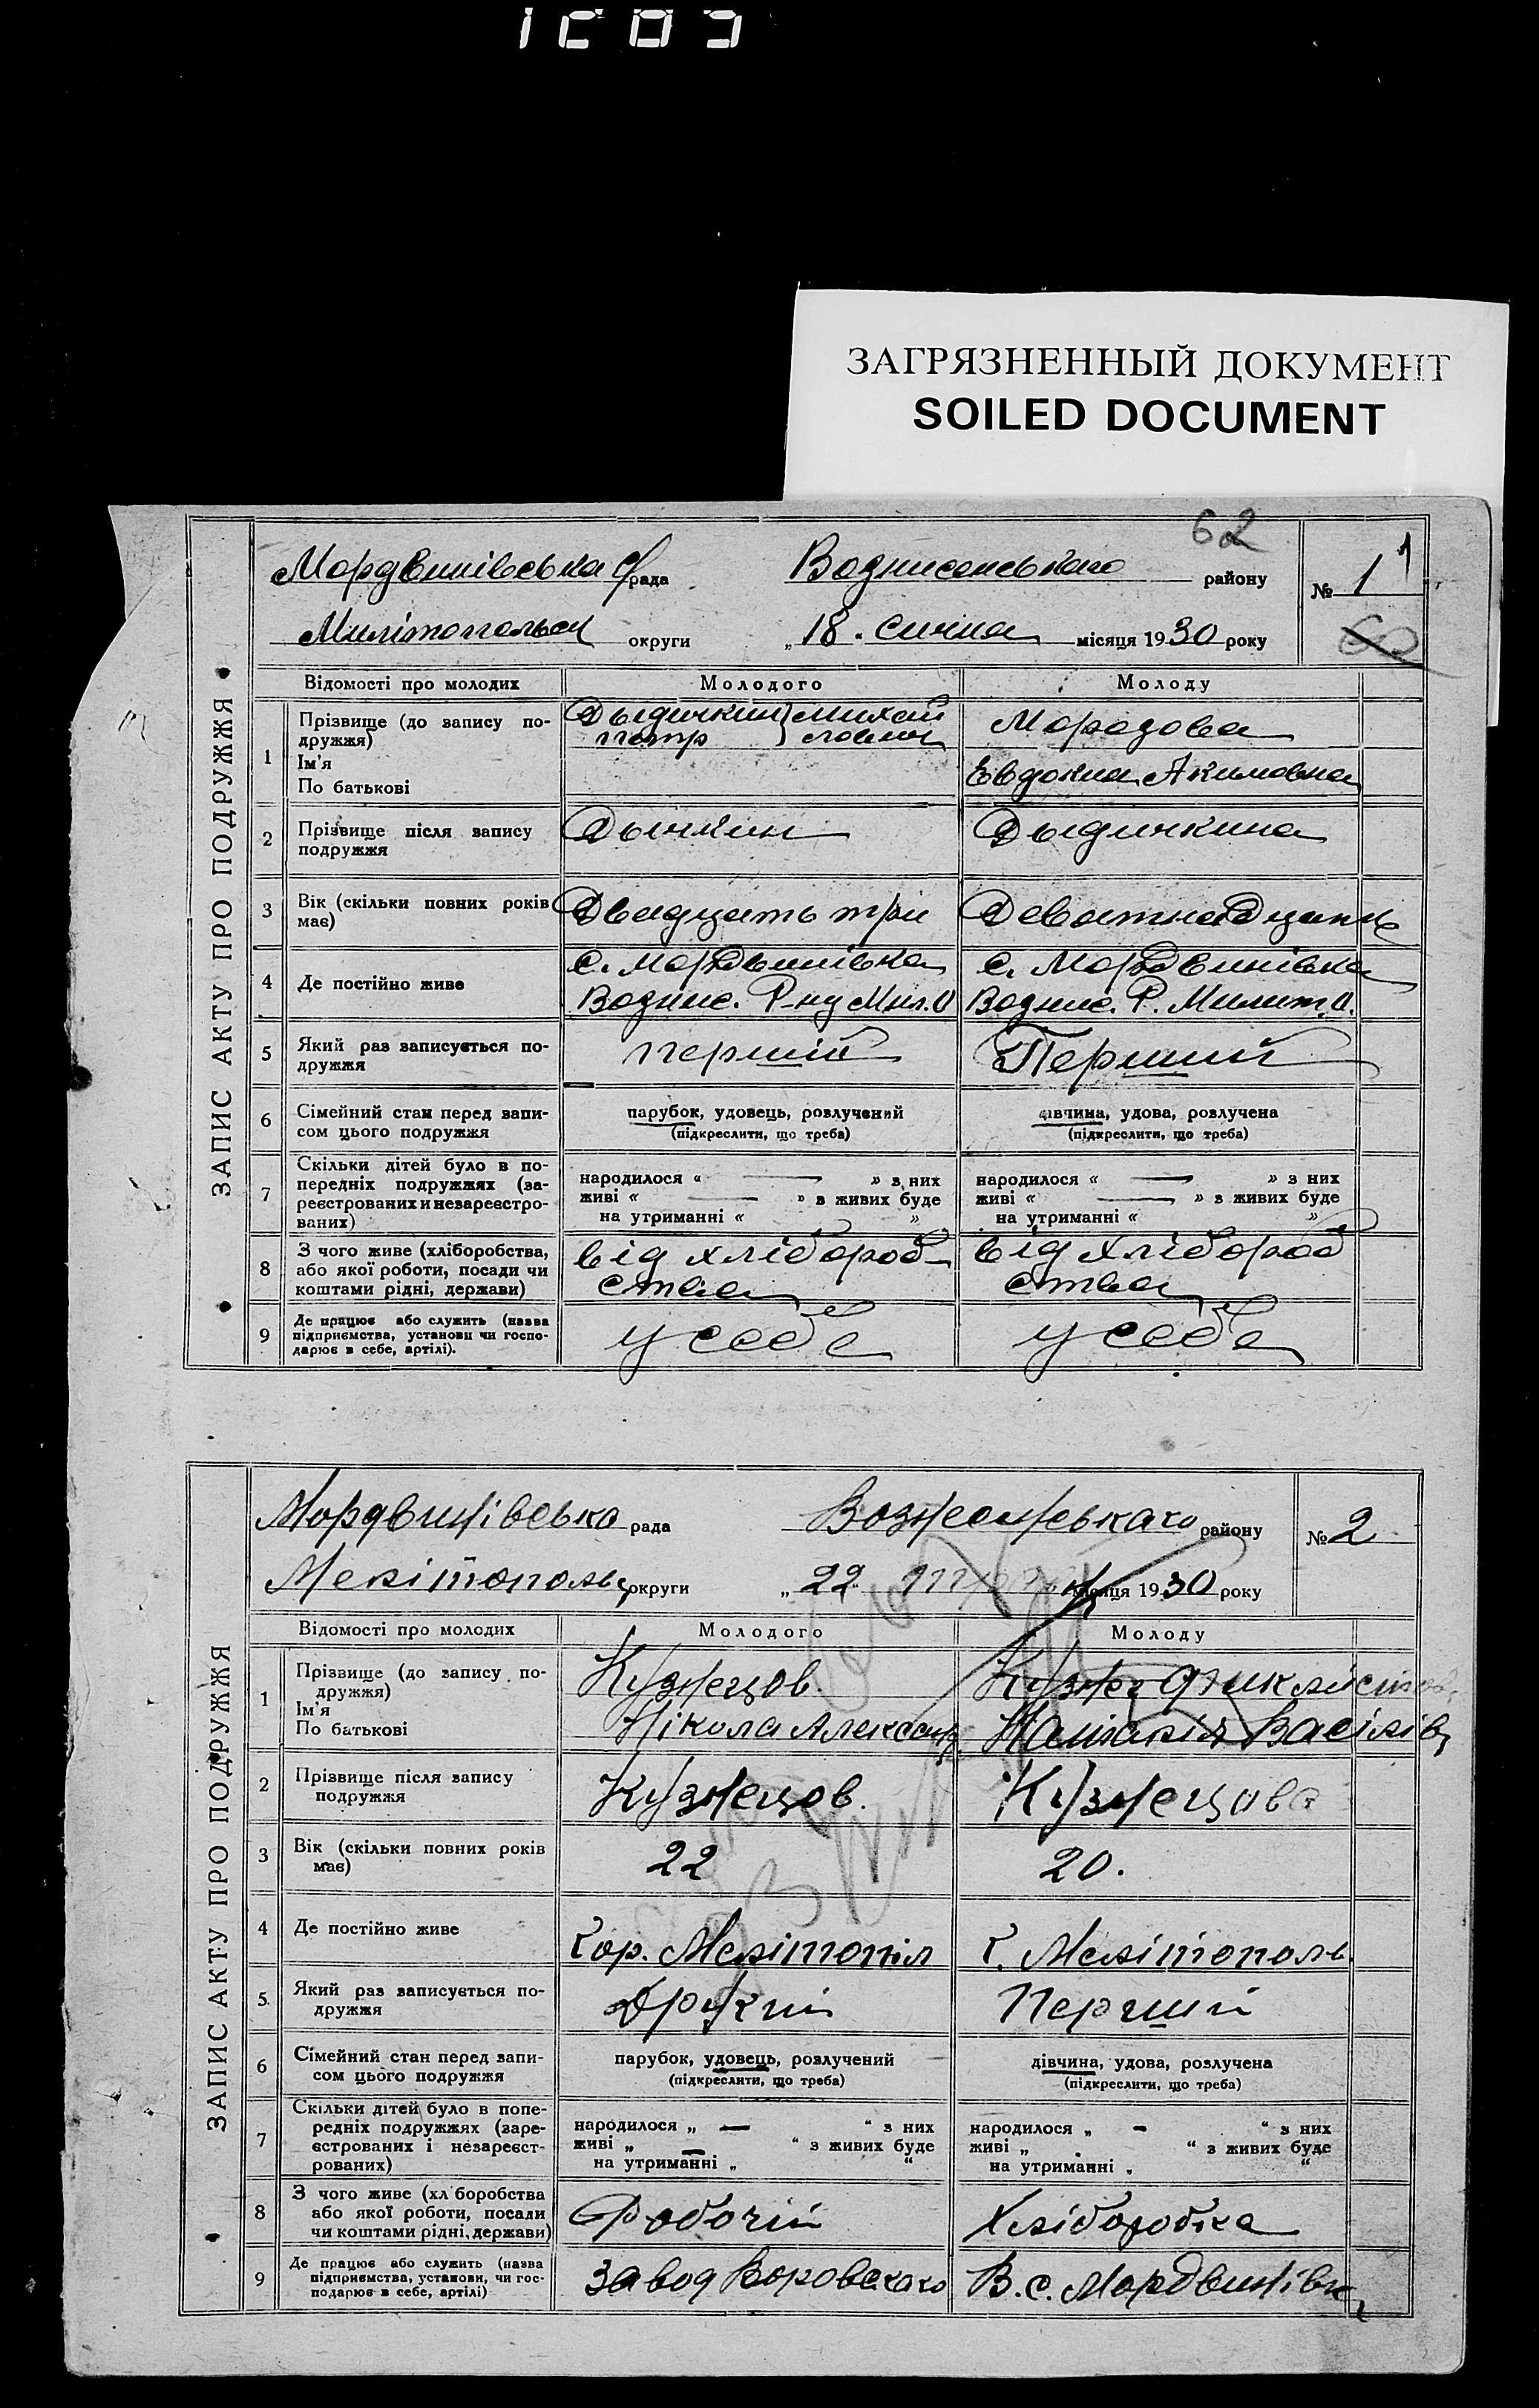 ЗАГРЯЗНЕННЫЙ ДОКУМЕНТ
SOILED DOCUMENT
62
ЗАПИС АКТУ ПРО ПОДРУЖЖЯ
Мордвинівська рада Вознисенського району № 1 1
Милітопольск округи „ 18 " січня місяця 1930 року
Відомості про молодих Молодого Молоду
1 Прізвище (до запису подружжя) Дыдичкин Михай Морозова
Ім'я Петр лович Евдокиа Акимовна
По батькові
2 Прізвище після запису Дычкин Дыдичкина
подружжя
3 Вік (скільки повних років Двадцать три Девятнадцать
має)
4 Де постійно живе с. Мордвинівка с. Мордвинівка
Вознис. Р-ну Мил. О Вознис. Р. Милит. О.
5 Який раз записується по- перший Перший
дружжя
6 Сімейний стан перед запи- парубок, удовець, розлучений дівчина, удова, розлучена
сом цього подружжя (підкреслити, що треба) (підкреслити, що треба)
7 Скільки дітей було в по-
передніх подружжях (за- народилося « — » з них народилося « — » з них
реєстрованих и незареєстро- живі « — » в живих буде живі « — » з живих буде
ваних) на утриманні « » на утриманні « »
8 З чого живе (хліборобства, від хлібороб- від хлібороб
або якої роботи, посади чи ства ства
коштами рідні, держави)
9 Де працює або служить (назва у себе у себе
підприємства, установи чи госпо-
дарює в себе, артілі).
ЗАПИС АКТУ ПРО ПОДРУЖЖЯ
Мордвинівська рада Вознесенськаго району № 2
Мелітополь округи „ 22 місяця 1930 року
Відомості про молодих Молодого Молоду
1 Прізвище (до запису по- Кузнецов. Кузнец
дружжя)
Ім'я Нікола Александ. Наталія Васілів
По батькові
2 Прізвище після запису Кузнецов. Кузнецова
подружжя
3 Вік (скільки повних років 22 20.
має)
4 Де постійно живе Гор. Мелітопіл Г. Мелітополь
5. Який раз записується по- Другий Перший
дружжя
6 Сімейний стан перед запи- парубок, удовець, розлучений дівчина, удова, розлучена
сом цього подружжя (підкреслити, що треба) (підкреслити, що треба)
7 Скільки дітей було в попе-
редніх подружжях (заре- народилося „ — “ з них народилося „ - “ з них
єстрованих і незареєст- живі „ — “ з живих буде живі „ . “ з живих буде
рованих) на утриманні „ “ на утриманні „ “
8 З чого живе (хл боробства Робочий Хліборобка
або якої роботи, посади
чи коштами рідні, держави)
9 Де працює або служить (назва завод Воровскаго В. с. Мордвинівк
підприємства, установи, чи гос-
подарює в себе, артілі)